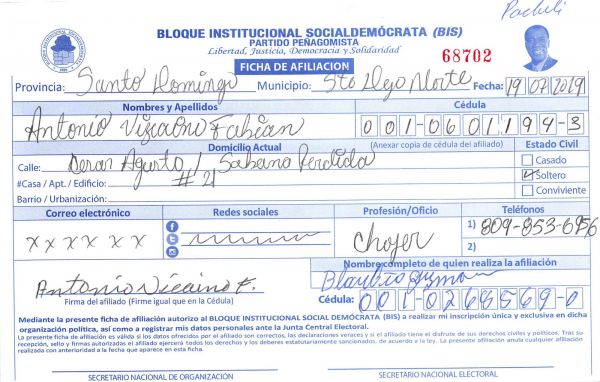 Pacheli
BLOQUE INSTITUCIONAL SOCIALDEMÓCRATA (BIS)
PARTIDO PEÑAGOMISTA
Libertad, Justicia, Democracia y Solidaridad
FICHA DE AFILIACION
68702
Provincia: Santo Domingo Municipio: Sto Dgo Norte Fecha: 19 07 2019
Nombres y Apellidos Cédula
Antonio Vizcaino Fabian 001-0601194-3
Domicilio Actual (Anexar copia de cédula del afiliado) Estado Civil
Calle: Agusto / Sabana Perdida Casado
#Casa / Apt. / Edificio: #21 Soltero
Barrio / Urbanización: Conviviente
Correo electrónico Redes sociales Profesión/Oficio Teléfonos
x x x x x x Chofer 1) 809-853-6956
2)
Nombre completo de quien realiza la afiliación
Antonio Vicaino F. Guzman
Firma del afiliado (Firme igual que en la Cédula) Cédula: 001-0268569-0
Mediante la presente ficha de afiliación autorizo al BLOQUE INSTITUCIONAL SOCIAL DEMÓCRATA (BIS) a realizar mi inscripción única y exclusiva en dicha
organización política, así como a registrar mis datos personales ante la Junta Central Electoral.
La presente ficha de afiliación es válida si los datos ofrecidos por el afiliado son correctos, las declaraciones veraces y si el afiliado tiene el disfrute de sus derechos civiles y políticos. Tras su
recepción, sello y firmas autorizadas el afiliado ejercerá todos los derechos y los deberes estatutariamente sancionados, de acuerdo a la ley. La presente afiliación anula cualquier afiliación
realizada con anterioridad a la fecha que aparece en esta ficha.
SECRETARIO NACIONAL DE ORGANIZACIÓN SECRETARIO NACIONAL ELECTORAL